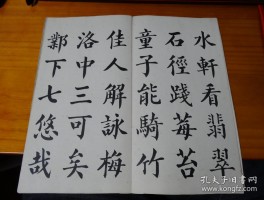 水軒看翡翠
石徑踐莓苔
童子能騎竹
佳人解詠梅
洛中三可矣
鄴下七悠哉
孔夫子旧书网